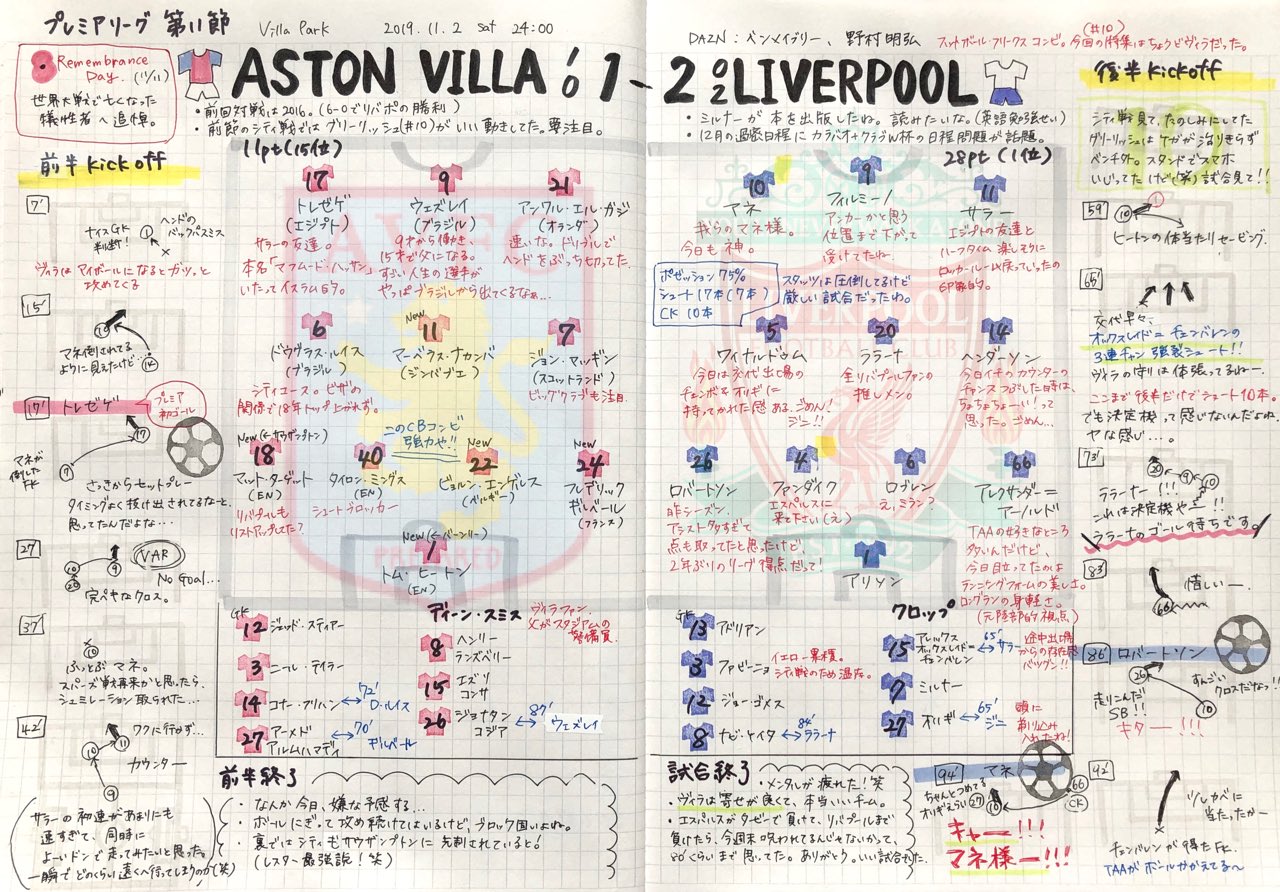 プレミアリーグ 第11節
Villa Park 2019.11.2 sat 24:00
Remembrance Day. (11/11)
世界大戦で亡くなった
犠牲者へ追悼。
ASTON VILLA 1-2 LIVERPOOL
1
0
0
2
・前回対戦は2016。(6-0でリバポの勝利)
・前節のシティ戦ではグリーリッシュ(#10)がいい動きしてた。要注目。
11pt(15位)
DAZN：ベンメイブリー、野村明弘
フットボール・フリークスコンビ。今回の特集はちょうどヴィラだった。
(#10)
・ミルナーが本を出版したわ。読みたいな。(英語勉強せい)
・12月の過密日程にカラバオ+クラブW杯の日程問題が話題。
28pt (1位)
前半 kick off
7'
ナイスGK
判断！
ヘンドの
バックパスミス
ヴィラはマイボールになるとガツッと
攻めてくる
15'
マネ倒されてる
ように見えたけど…
17' トレゼゲ
プレミア
初ゴール
マネが
倒した
FK
さっきからセットプレー
タイミングよく抜け出されてるなーと
思ってたんだよな…
27'
VAR
No Goal...
完ぺきなクロス。
37'
ふっとぶマネ。
スパーズ戦再来かと思ったら、
シュミレーション取られた…
42'
ワクに行かず…
カウンター
サラーの初速があまりにも
速すぎて、同時に
よーいドンで走ってみたいと思った。
一瞬でどのくらい遠くへ行ってしまうのか(笑)
17
トレゼゲ
(エジプト)
サラーの友達。
本名「マフムード・ハッサン」
いたってイスラム的。
9
ウェズレイ
(ブラジル)
9才から働き、
15才で父になる。
すごい人生の選手が
やっぱブラジルから出てくるなぁ…
21
アンワル・エル・ガジ
(オランダ)
速いな。ドリブルで
ヘンドをぶっち切ってた
6
ドウグラス・ルイス
(ブラジル)
シティユース。ビザの
関係で18年トップ上がれず。
New
11
マーベラス・ナカンバ
(ジンバブエ)
7
ジョン・マッギン
(スコットランド)
ビッグクラブも注目
このCBコンビ
強力や!!
New(←サウザンプトン)
18
マット・ターゲット
(EN)
リバプールも
リストアップしてた？
40
タイロン・ミングス
(EN)
シュートブロッカー
New
22
ビョルン・エンゲルス
(ベルギー)
New
24
フレデリック
ギルベール
(フランス)
New(←バーンリー)
1
トム・ヒートン
(EN)
ディーン・スミス
ヴィラファン。
父がスタジアムの
警備員
GK
12 ジェッド・スティアー
3 ニール・テイラー
14 コナー・アリハン ⟷ 72' D・ルイス
27 アーメド
アルムハマディ ⟷ 70' ギルベール
8 ヘンリー
ランズベリー
15 エズリ
コンサ
26 ジョナタン
コジア ⟷ 87' ウェズレイ
前半終了
・なんか今日、嫌な予感する…
・ボールにぎって攻め続けてはいるけど、ブロック固いよね。
・裏ではシティもサウザンプトンに先制されていると！
(レスター最強説！笑)
10
マネ
我らのマネ様。
今日も神。
9
フィルミーノ
アンカーかと思う
位置まで下がって
受けてたね。
11
サラー
エジプトの友達と
ハーフタイム楽しそうに
ロッカールーム戻っていったの
印象的。
ポゼッション 75%
シュート 17本(7本)
CK 10本
スタッツは圧倒してるけど
厳しい試合だったわ。
5
ワイナルドゥム
今日は交代出場の
チェンボとオリギに
持ってかれた感ある。ごめん！
ジニー!!
20
ララーナ
全リバプールファンの
推しメン。
14
ヘンダーソン
今日イチのカウンターの
チャンスつぶした時は、
ちょちょちょーい！って
思った。ごめん…
26
ロバートソン
昨シーズン、
アシスト多すぎて
点も取ってたと思ったけど、
2年ぶりのリーグ得点だって！
4
ファンダイク
エスパルスに
来て下さい(え)
6
ロブレン
え、ミラン？
66
アレクサンダー＝
アーノルド
TAAの好きなところ
多いんだけど、
今日目立ってたのは
ランニングフォームの美しさ。
ロングランの身軽さ。
(元陸部的視点)
1
アリソン
クロップ
GK
13 アドリアン
3 ファビーニョ
イエロー累積。
シティ戦のため温存。
12 ジョー・ゴメス
8 ナビ・ケイタ ⟷ 84' ララーナ
15 アレックス
オックスレイド＝
チェンバレン ⟷ 65' サラー
途中出場
からの存在感
バツグン!!
7 ミルナー
27 オリギ ⟷ 65' ジニー
頭に
剃り込み
入れたね！
試合終了
・メンタルが疲れた！笑
・ヴィラは寄せが良くて、本当いいチーム。
・エスパルスがダービーで負けて、リバプールまで
負けたら、今週末呪われてるんじゃないかって、
80'くらいまで思いてた。ありがとう。いい試合だった
後半 kick off
シティ戦見て、たのしみにしてた
グリーリッシュはケガが治りきらず
ベンチ外。スタンドでスマホ
いじってたけど(笑)試合見て!!
59'
ヒートンの体当たりセービング。
65'
交代早々、
オックスレイド＝チェンバレンの
3連チャン強襲シュート!!
ヴィラの守りは体張ってるねー。
ここまで後半だけでシュート10本。
でも決定機って感じないんだよね
ヤな感じ…。
73'
ララーナ!!!
これは決定機やー!!
ララーナのゴール待ちです。
83'
惜しいー
86' ロバートソン
走りこんだ
SB!!
キター!!!
すんごい
クロスだなっ!!
94' マネ
ちゃんとつめてる
オリギえらい
CK
キャー!!!
マネ様ー!!!
92'
ツレカベに
当たったかー
チェンバレンが得たFK。
TAAがボールかかえてる〜